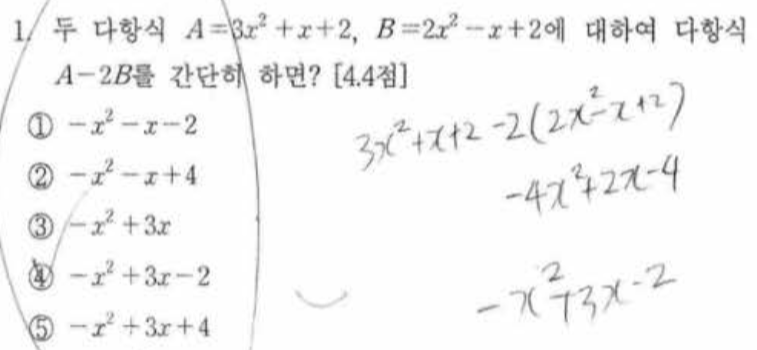 1. 두 다항식 A=3x²+x+2, B=2x²-x+2에 대하여 다항식
A-2B를 간단히 하면? [4.4점]
① -x²-x-2
② -x²-x+4
③ -x²+3x
④ -x²+3x-2
⑤ -x²+3x+4
3x²+x+2-2(2x²-x+2)
-4x²+2x-4
-x²+3x-2